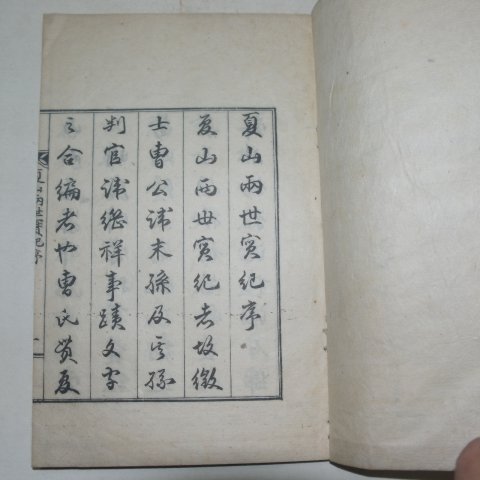 夏山兩世實紀序
夏山兩世實紀者故徵
士曹公諱末孫及其孫
判官諱繼祥事蹟文字
之合編者也曹氏貫夏